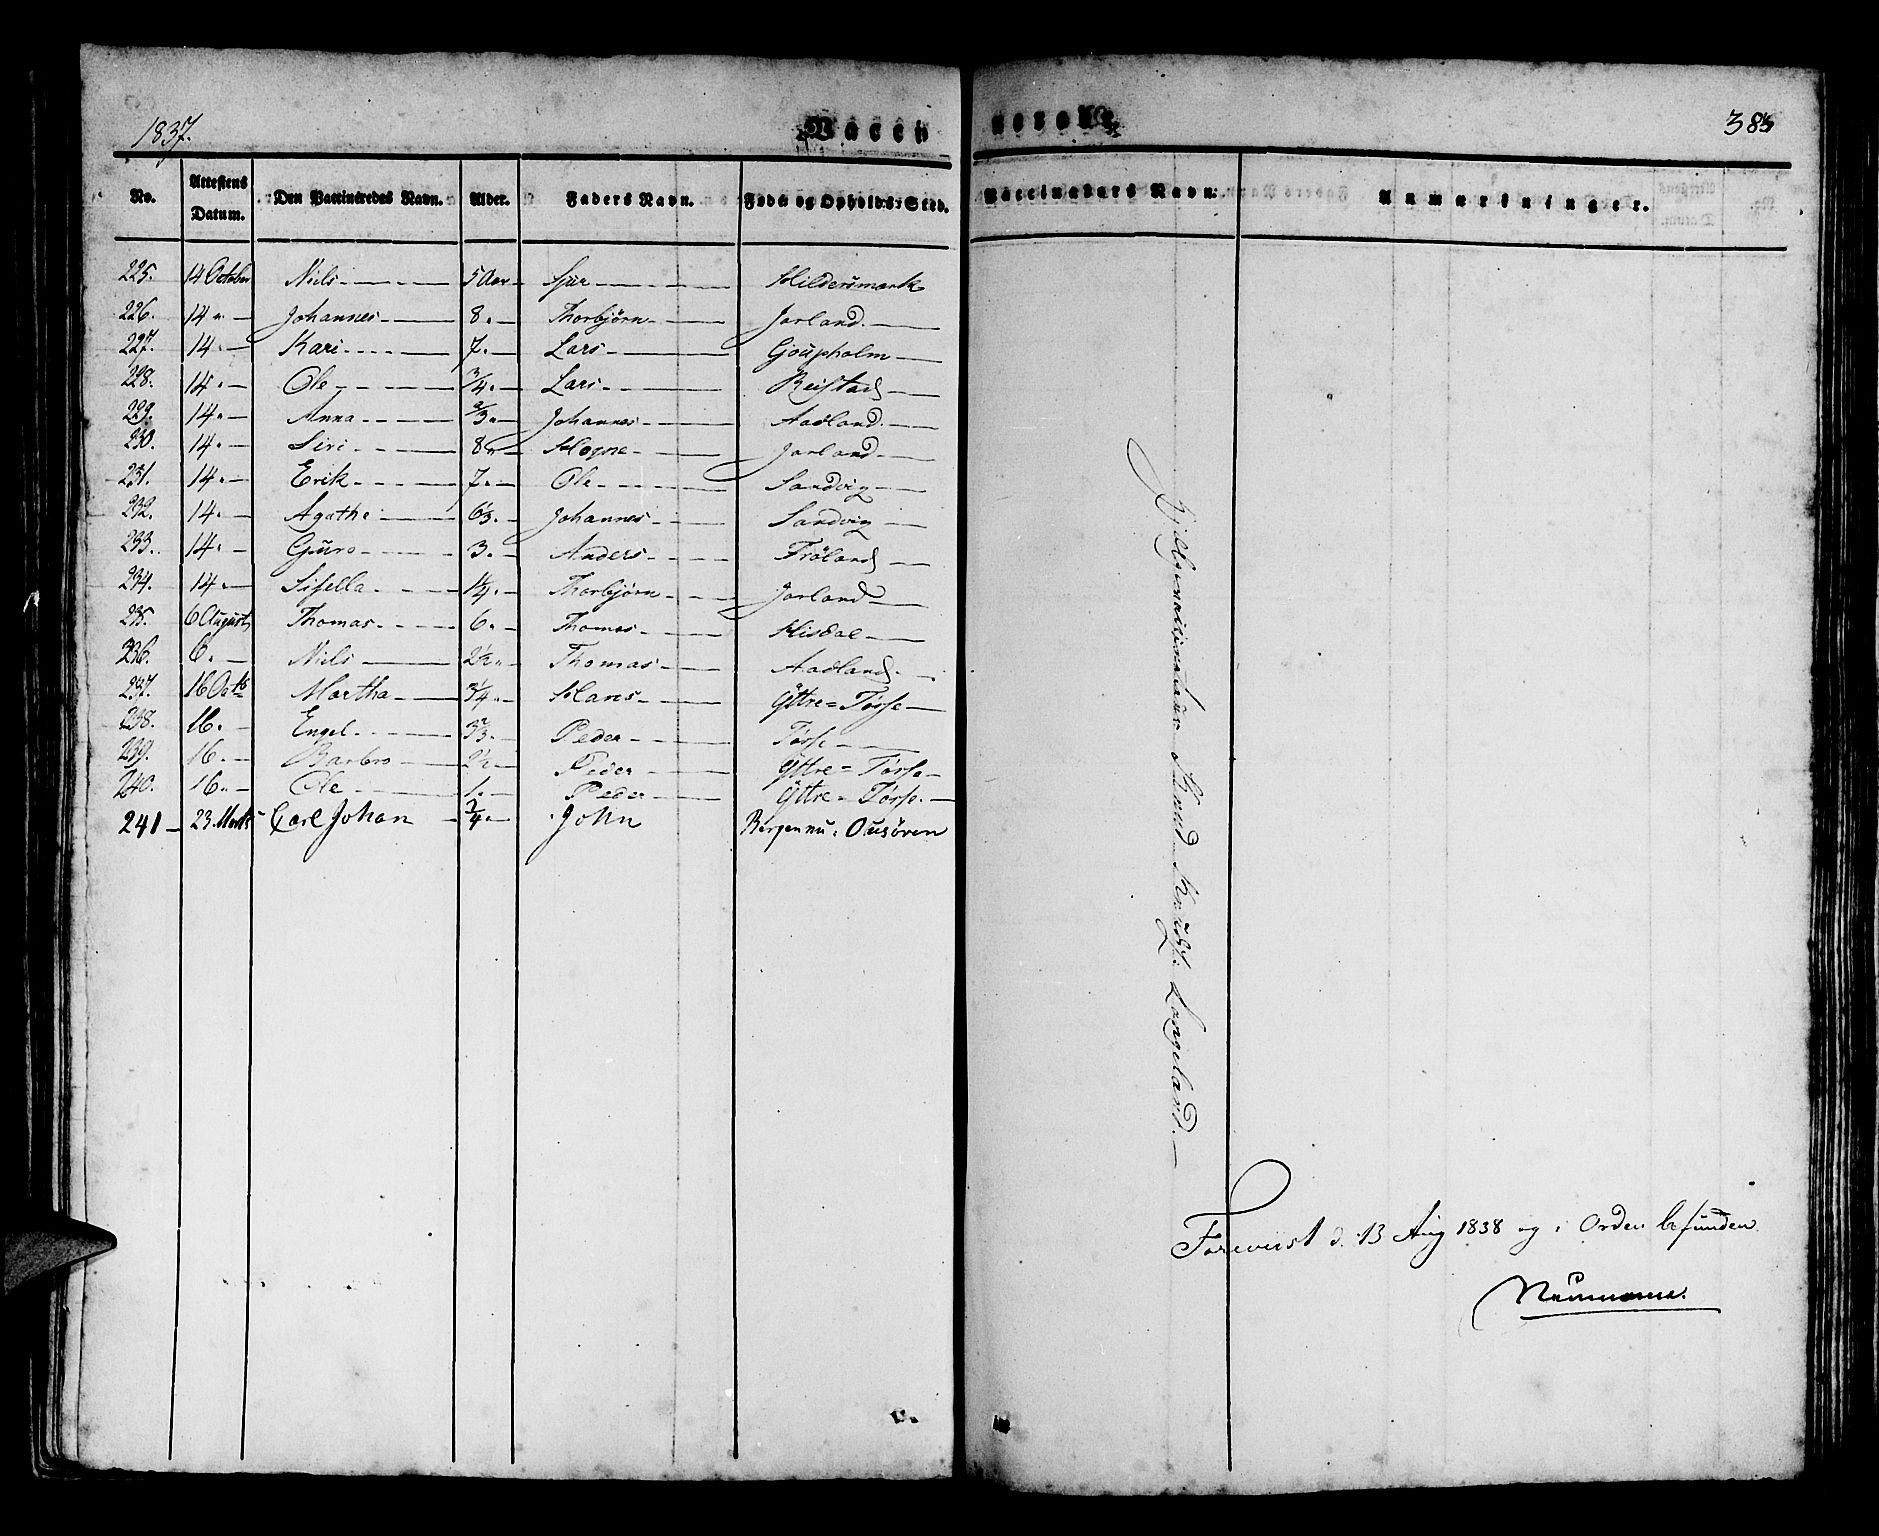 1837.
Vaccinerede.
383
No. Attestens Datum. Den Vaccineredes Navn. Alder. Faders Navn. Føde og Opholds-Sted. Vaccinateurs Navn. Anmærkninger.
225. 14 October Niels 5 Aar Sjur Hildersmark
226. 14 " Johannes 8 " Thorbjörn Jarland
227. 14 " Kari 7 " Lars
228. 14 " Ole 3/4 " Lars Reistad
229. 14 " Anna 2/3 " Johannes Aadland
230. 14 " Siri 8 " Hogne Jarland
231. 14 " Erik 7 " Ole Sandvig
232. 14 " Agathe 6 1/3 " Johannes Sandvig
233. 14 " Guro 3 " Anders Fröland
234. 14 " Sisella 1 1/4 " Thorbjörn Jarland
235. 6 August Thomas 6 " Thomas Hisdal
236. 6 " Niels 2 1/2 " Thomas Aadland
237. 16 Octb Martha 3/4 " Hans Yttre = Tösse
238. 16 " Engel Peder Tösse
239. 16 " Barbro 2 1/2 Peder Yttre = Tösse
240. 16 " Ole 1 " Peder Yttre = Tösse
241 23. Marts Carl Johan 3/4 " John Bergen nu: Ousøren
Hjelpevaccinateur Knud Knuds: Langeland.
Foreviist d. 13 Aug 1838 og i Orden befunden
Neumann.